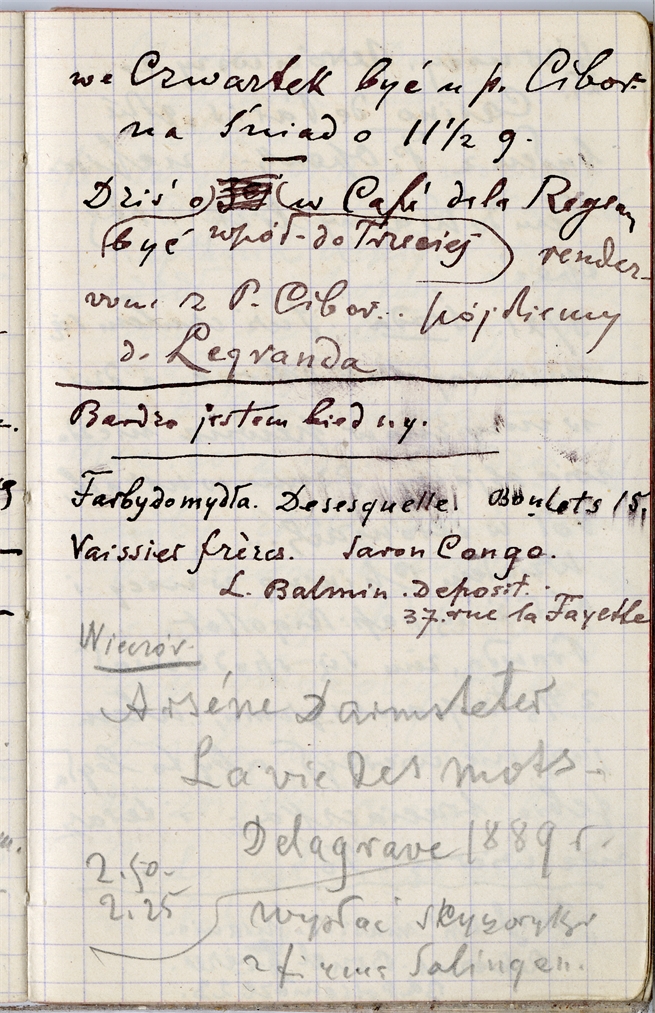 we Czwartek być u p. Cibor.
na śniad o 11 1/2 g.
Dziś o (w Café dela Regen
być wpół-do Trzeciej rendez-
vous z P. Cibor.. pójdziemy
d. Legranda
Bardzo jestem biedny.
Farbydomydła. Desesquelle. Boulets 15,
Vaissier frères. Savon Congo.
L. Balmin. Deposit.
37. rue la Fayette
Wieczór.
Arsène Darmsteter
La vie des mots.
Delagrave 1889 r.
2.50-
2.25
wysłać skyzoryki
z firmą Solingen.